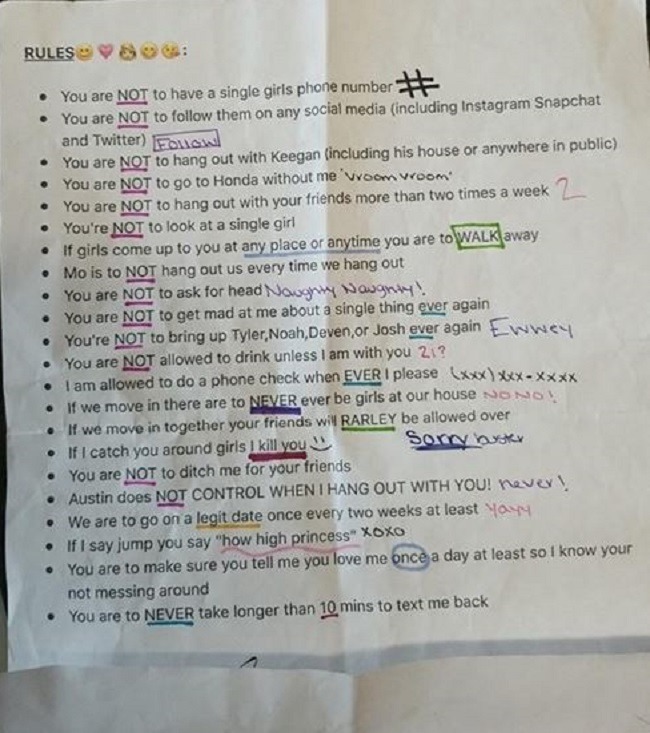 RULES😊💗👸😋😘:
• You are NOT to have a single girls phone number #
• You are NOT to follow them on any social media (including Instagram Snapchat
and Twitter) Follow
• You are NOT to hang out with Keegan (including his house or anywhere in public)
• You are NOT to go to Honda without me 'vroom vroom'
• You are NOT to hang out with your friends more than two times a week 2
• You're NOT to look at a single girl
• If girls come up to you at any place or anytime you are to WALK away
• Mo is to NOT hang out us every time we hang out
• You are NOT to ask for head Naughty Naughty!
• You are NOT to get mad at me about a single thing ever again
• You're NOT to bring up Tyler,Noah,Deven,or Josh ever again Ewwey
• You are NOT allowed to drink unless I am with you 21?
• I am allowed to do a phone check when EVER I please (xxx) xxx-xxxx
• If we move in there are to NEVER ever be girls at our house NO NO!
• If we move in together your friends will RARLEY be allowed over
• If I catch you around girls I kill you :) Sorry buster
• You are NOT to ditch me for your friends
• Austin does NOT CONTROL WHEN I HANG OUT WITH YOU! never!
• We are to go on a legit date once every two weeks at least Yayy
• If I say jump you say "how high princess" XOXO
• You are to make sure you tell me you love me once a day at least so I know your
not messing around
• You are to NEVER take longer than 10 mins to text me back